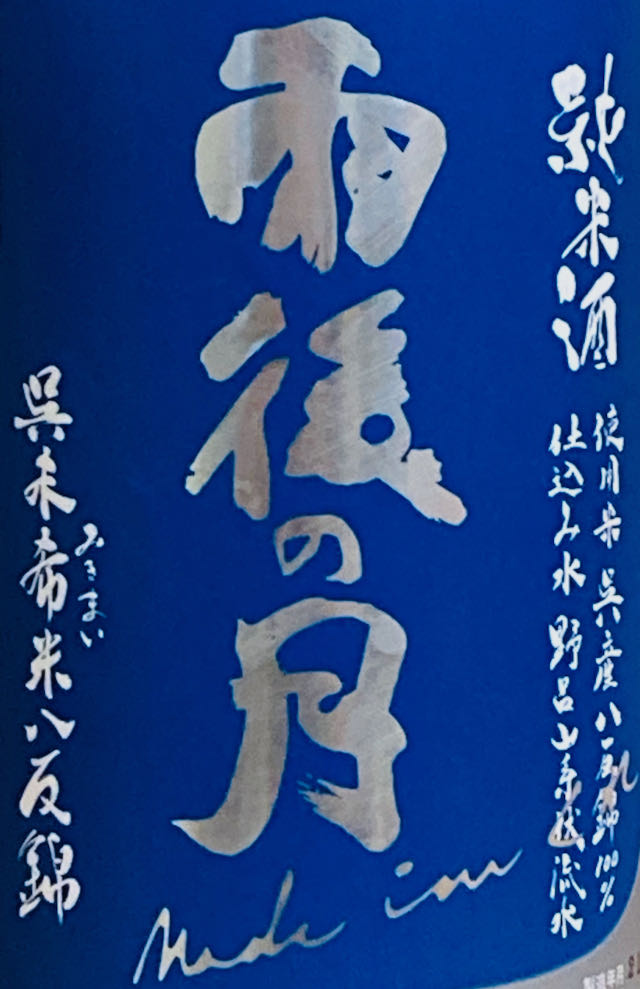 純米酒
使用米 呉産八反錦100%
仕込み水 野呂山系伏流水
雨後の月
呉未希米八反錦
みきまい
Made in
製造年月